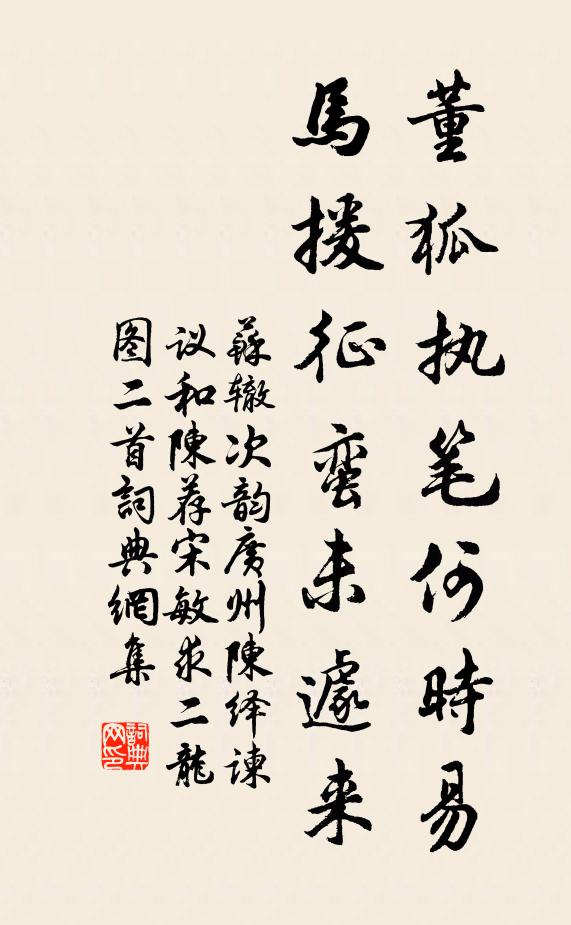 董狐执笔何時易
馬援征蛮未遽来
蘇辙次韵廣州陳绎谏
议和陳荐宋敏求二龍
图二首詞典網集
詞典
网印